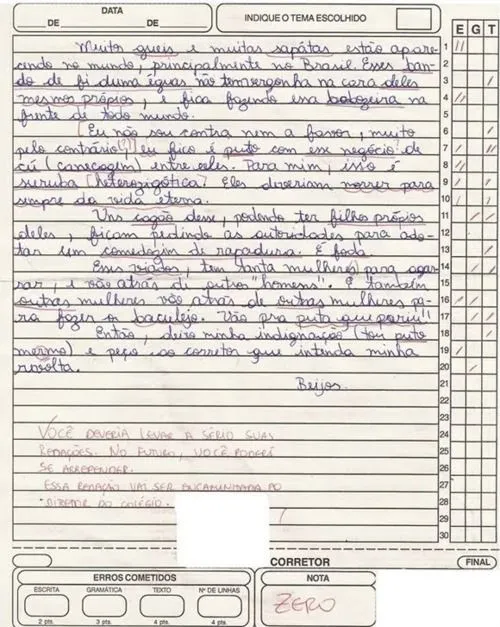 DATA
DE DE
INDIQUE O TEMA ESCOLHIDO
E G T
Muitos gueis e muitas sapátas estão apare- 1
cendo no mundo, principalmente no Brasil. Esses ban- 2
do de fi duma éguas não tem vergonha na cara deles 3
mesmos próprios, e fica fazendo essa babozeira na 4
frente de todo mundo. 5
Eu não sou contra nem a favor, muito 6
pelo contrário(!) eu fico é puto com esse negócio de 7
cú (canecagem) entre eles. Para mim, isso é 8
suruba heterozigótica. Eles deveriam morrer para 9
sempre da vida eterna. 10
Uns cagão desse, podendo ter filhos próprios 11
deles, ficam pedindo as autoridades para ado- 12
tar um comedorim de rapadura. É foda. 13
Esses viados, tem tanta mulheres para agar- 14
rar, e vão atrás de outros "homens". E também 15
outras mulheres vão atrás de outras mulheres pa- 16
ra fazer os baculejo. Vão pra puta que pariu!! 17
Então, deixo minha indignação (tou puto 18
mermo) e peço ao corretor que intenda minha 19
revolta. 20
Beijos. 21
22
23
VOCÊ DEVERIA LEVAR A SÉRIO SUAS 24
REDAÇÕES. NO FUTURO, VOCÊ PODERÁ 25
SE ARREPENDER. 26
ESSA REDAÇÃO VAI SER ENCAMINHADA PO 27
DIRETOR DO COLÉGIO. 28
29
30
CORRETOR (FINAL)
ERROS COMETIDOS
NOTA
ESCRITA GRAMÁTICA TEXTO Nº DE LINHAS
ZERO
2 pts. 3 pts. 4 pts. 4 pts.